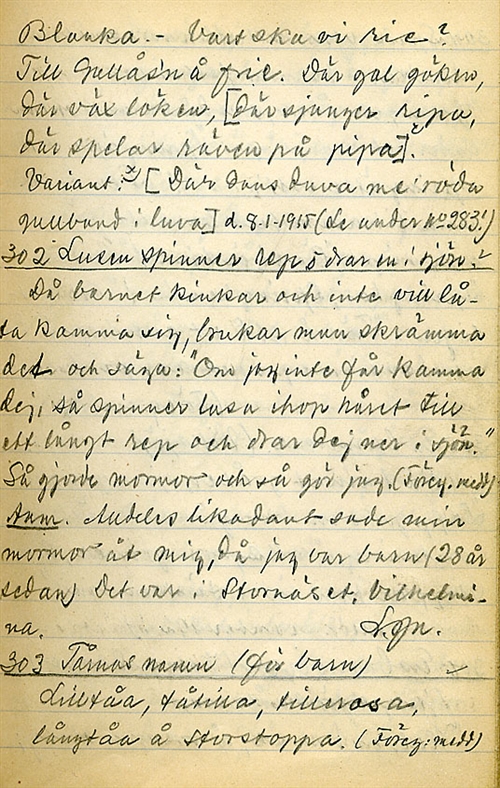 Blanka. - Vart ska vi rie?
Till Gullåsn å frie. Där gal göken,
där väx löken, [Där sjunger ripa,
där spelar räven på pipa]x.
Variant: x) [Där dans duva me röda
gullband i luva] d. 8-1-1915 (Se under No 283!)
302 Lusen spinner rep o drar en i sjön.
Då barnet kinkar och inte vill lå-
ta kamma sig, brukar man skrämma
det och säga: "Om jag inte får kamma
dej, så spinner lusa ihop håret till
ett långt rep och drar dej ner i sjön."
Så gjorde mormor och så gör jag. (Föreg. medd)
Anm. Aldeles likadant sade min
mormor åt mig, då jag var barn (28 år
sedan) Det var i Stornäset, Vilhelmi-
na.
303 Tårnas namn (för barn)
Lilltåa, tåtilla, tillerosa,
långtåa å storstoppa. (Föreg: medd)